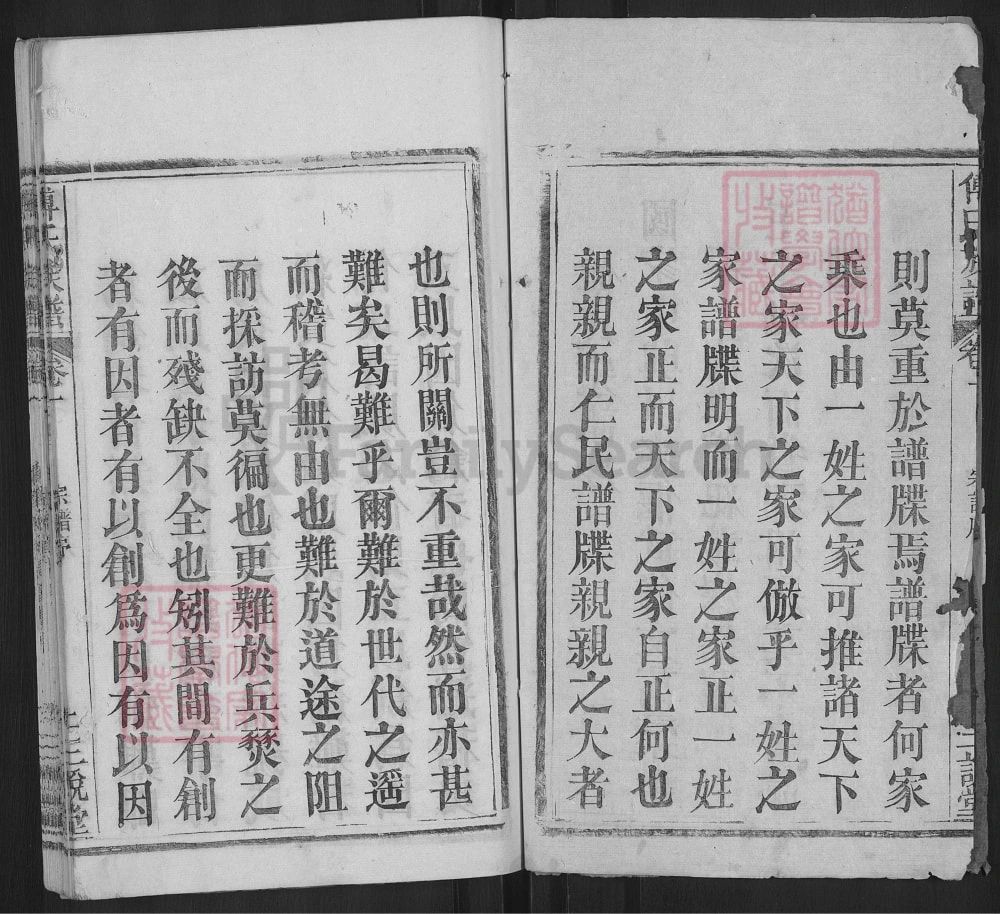 則莫重於譜牒焉譜牒者何家
乘也由一姓之家可推諸天下
之家天下之家可倣乎一姓之
家譜牒明而一姓之家正一姓
之家正而天下之家自正何也
親親而仁民譜牒親親之大者
也則所關豈不重哉然而亦甚
難矣曷難乎爾難於世代之遥
而稽考無由也難於道途之阻
而探訪莫徧也更難於兵燹之
後而殘缺不全也矧其間有創
者有因者有以創爲因有以因
傅氏族譜
卷一
宗譜序
FamilySearch